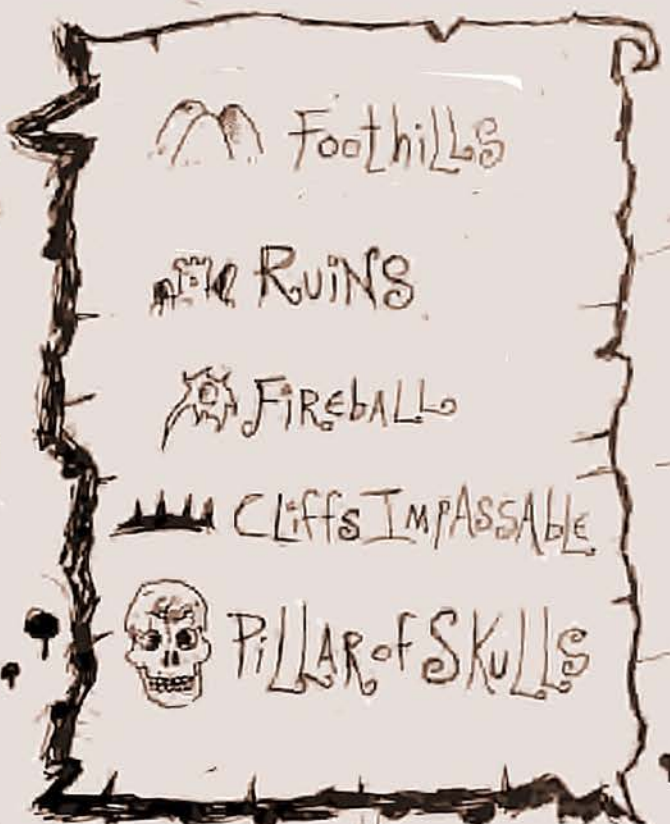 Foothills
Ruins
Fireball
Cliffs Impassable
Pillar of Skulls